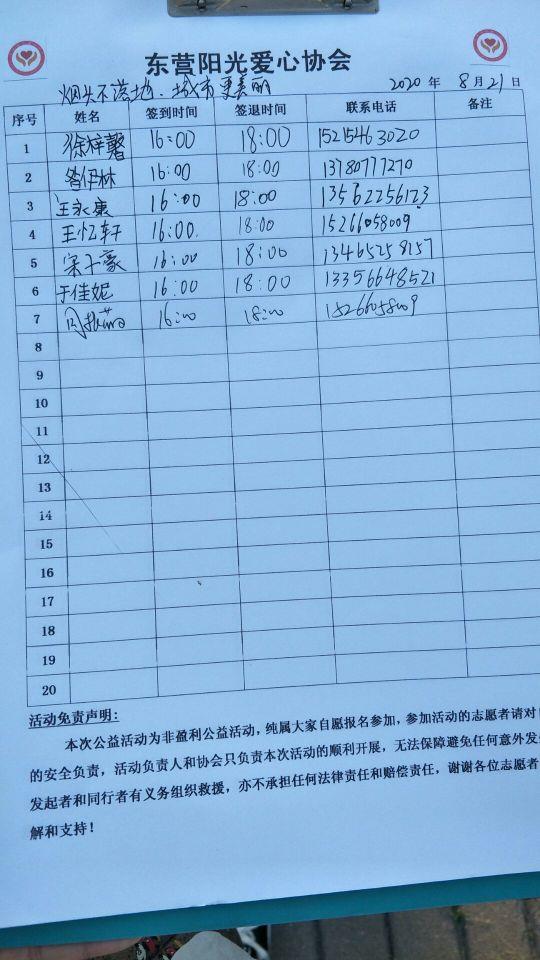 东营阳光爱心协会
烟头不落地·城市更美丽 2020 年 8 月 21 日
序号 姓名 签到时间 签退时间 联系电话 备注
1 徐梓馨 16:00 18:00 15215463020
2 昝伊林 16:00 18:00 13780777270
3 王永康 16:00 18:00 13562256123
4 王忆轩 16:00 18:00 15266058009
5 宋子豪 16:00 18:00 13465258157
6 于佳妮 16:00 18:00 13356648521
7 16:00 18:00 15266058009
8
9
10
11
12
13
14
15
16
17
18
19
20
活动免责声明:
本次公益活动为非盈利公益活动，纯属大家自愿报名参加，参加活动的志愿者请对
的安全负责，活动负责人和协会只负责本次活动的顺利开展，无法保障避免任何意外发
发起者和同行者有义务组织救援，亦不承担任何法律责任和赔偿责任，谢谢各位志愿者
解和支持！